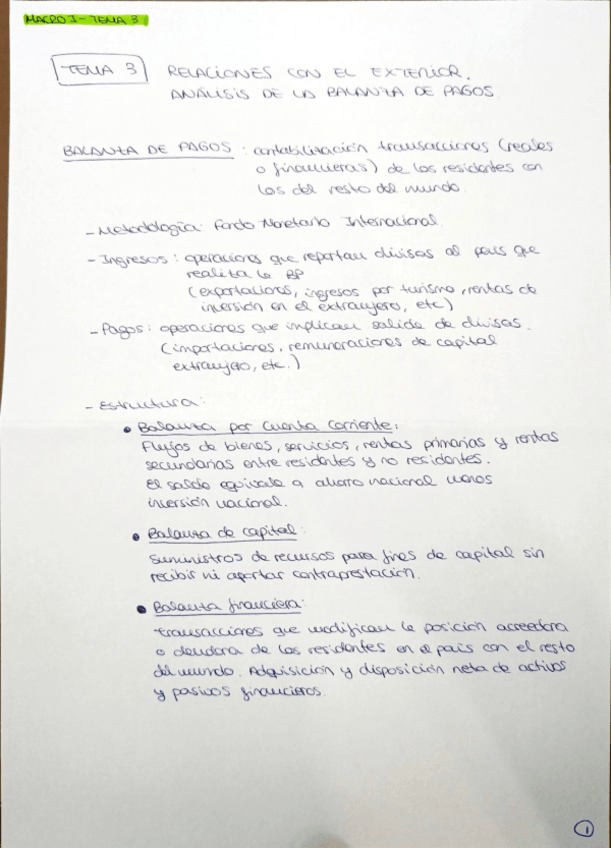 MACRO I - TEMA 3
TEMA 3
RELACIONES CON EL EXTERIOR.
ANÁLISIS DE LA BALANZA DE PAGOS.
BALANZA DE PAGOS: contabilización transacciones (reales
o financieras) de los residentes con
los del resto del mundo.
- Metodología: Fondo Monetario Internacional.
- Ingresos: operaciones que reportan divisas al país que
realiza la BP
(exportaciones, ingresos por turismo, rentas de
inversión en el extranjero, etc)
- Pagos: operaciones que implican salida de divisas.
(importaciones, remuneraciones de capital
extranjero, etc.)
- Estructura:
• Balanza por Cuenta Corriente:
Flujos de bienes, servicios, rentas primarias y rentas
secundarias entre residentes y no residentes.
El saldo equivale a ahorro nacional menos
inversión nacional.
• Balanza de capital:
Suministros de recursos para fines de capital sin
recibir ni aportar contraprestación.
• Balanza financiera:
transacciones que modifican la posición acreedora
o deudora de los residentes en el país con el resto
del mundo. Adquisición y disposición neta de activos
y pasivos financieros.
1